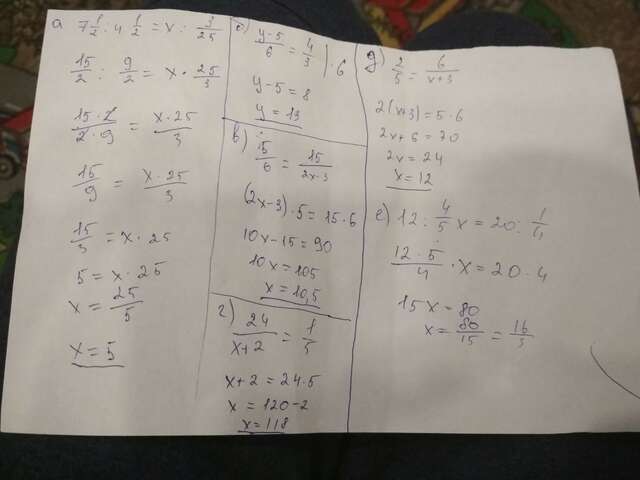 а 7 1/2 : 4 1/2 = x : 3/25
15/2 : 9/2 = x · 25/3
15·2/2·9 = x·25/3
15/9 = x·25/3
15/3 = x·25
5 = x·25
x = 25/5
x = 5
б) y-5/6 = 4/3 | · 6
y-5 = 8
y = 13
в) 5/6 = 15/2x-3
(2x-3)·5 = 15·6
10x-15 = 90
10x = 105
x = 10,5
г) 24/x+2 = 1/5
x+2 = 24·5
x = 120-2
x = 118
д) 2/5 = 6/x+3
2(x+3) = 5·6
2x+6 = 70
2x = 24
x = 12
е) 12 : 4/5 x = 20 : 1/4
12·5/4 · x = 20·4
15x = 80
x = 80/15 = 16/3